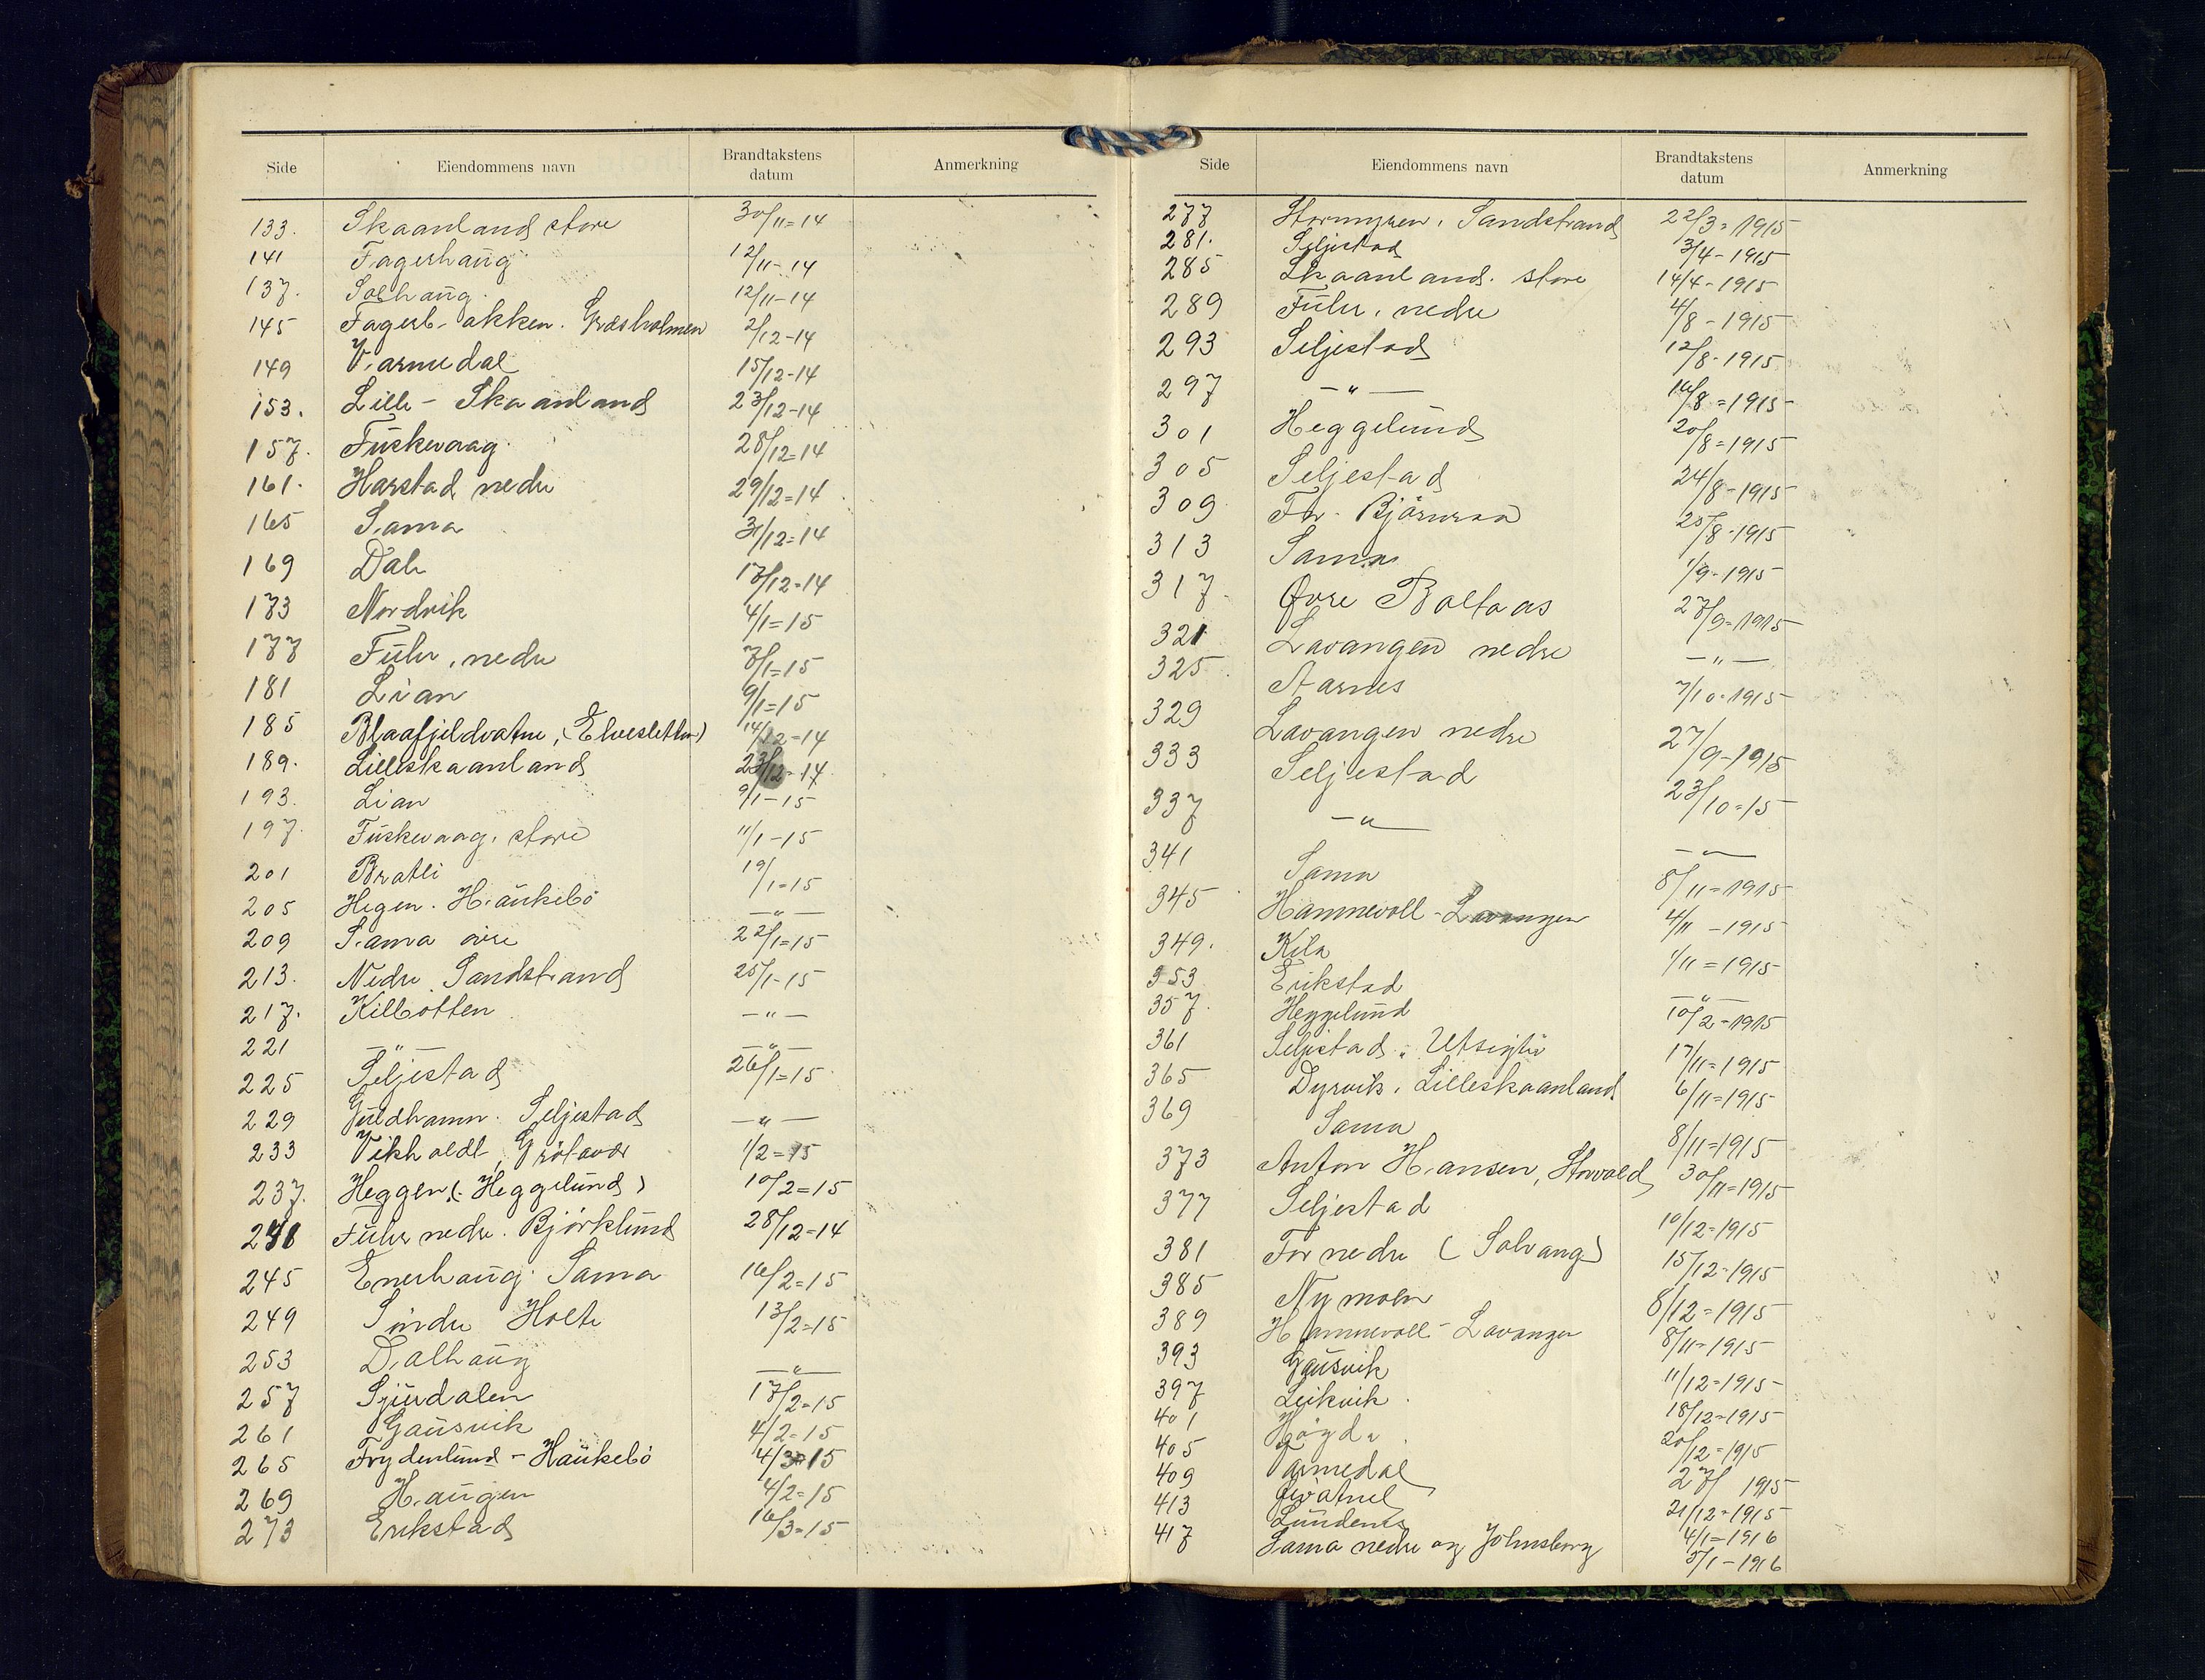 Side Eiendommens navn Brandtakstens datum Anmerkning
133. Skaanland store 30/11=14
141 Fagerhaug 12/11-14
137. Solhaug. 12/11-14
145 Fagerb-akken. Græsholmen 2/12-14
149 Varmedal 15/12-14
153. Lille-Skaanland 23/12-14
157. Fuskevaag. 28/12=14
161. Harstad nedre 29/12=14
165 Sama 31/12=14
169 Dale 17/12=14
173 Nordvik 4/1=15
177 Fuhr, nedre 7/1=15
181 Lian 9/1=15
185 Blaafjeldvatne, (Elvesletten) 14/12-14
189. Lilleskaanland 23/12-14
193. Lian 9/1-15
197. Fuskevaag, store 11/1-15
201 Bratli 19/1=15
205 Hegen. Haukebö -"-
209 Sama övre 22/1=15
213. Nedre Sandstrand 25/1-15
217. Kilbotten -"-
221 -"- -"-
225 Seljestad 26/1=15
229 Guldhamn. Seljestad -"-
233 Vikholdt, Grötavær 1/2=15
237. Heggen (: Heggelund) 10/2=15
241 Fuhr nedre. Björklund 28/12=14
245 Enerhaug. Sama 16/2=15
249 Sindre Holte 13/2=15
253 Dalhaug -"-
257 Sjurdalen 17/2=15
261 Gausvik 4/2=15
265 Frydenlund - Haukebö 4/3=15
269 Haugen 4/2=15
273 Erikstad 16/3=15
Side Eiendommens navn Brandtakstens datum Anmerkning
277 Stormyren, Sandstrand 22/3=1915
281. Seljestad 3/4-1915
285 Skaanland. store 14/4-1915
289 Fuhr, nedre 4/8-1915
293 Seljestad 12/8-1915
297 -"- 16/8=1915
301 Heggelund 20/8=1915
305 Seljestad 24/8-1915
309 For. Björnraa 25/8-1915
313 Sama 1/9-1915
317. Øvre Boltaas 27/9=1915
321 Lavangen nedre -"-
325 Aarnes 7/10-1915
329 Lavangen nedre 27/9-1915
333 Seljestad 23/10=15
337 -"- -"-
341 Sama 8/11=1915
345 Hamnevoll-Lavangen 4/11-1915
349. Kila 1/11=1915
353 Erikstad -"-
357. Heggelund 10/2=1915
361 Seljestad, Utsigten 17/11=1915
365 Dyrvik, Lilleskaanland 6/11=1915
369 Sama 8/11=1915
373 Anton Hansen, Storvold 30/11=1915
377 Seljestad 10/12=1915
381 For nedre (Solvang) 15/12=1915
385 Nymoen 8/12=1915
389 Hamnevoll-Lavangen 8/11-1915
393 Gausvik 11/12=1915
397 Leikvik. 18/12=1915
401 Höyda. 20/12=1915
405 Varmedal 27/ 1915
409 21/12=1915
413 Lundenes 4/1=1916
417 Sama nedre og Johnsborg 5/1-1916